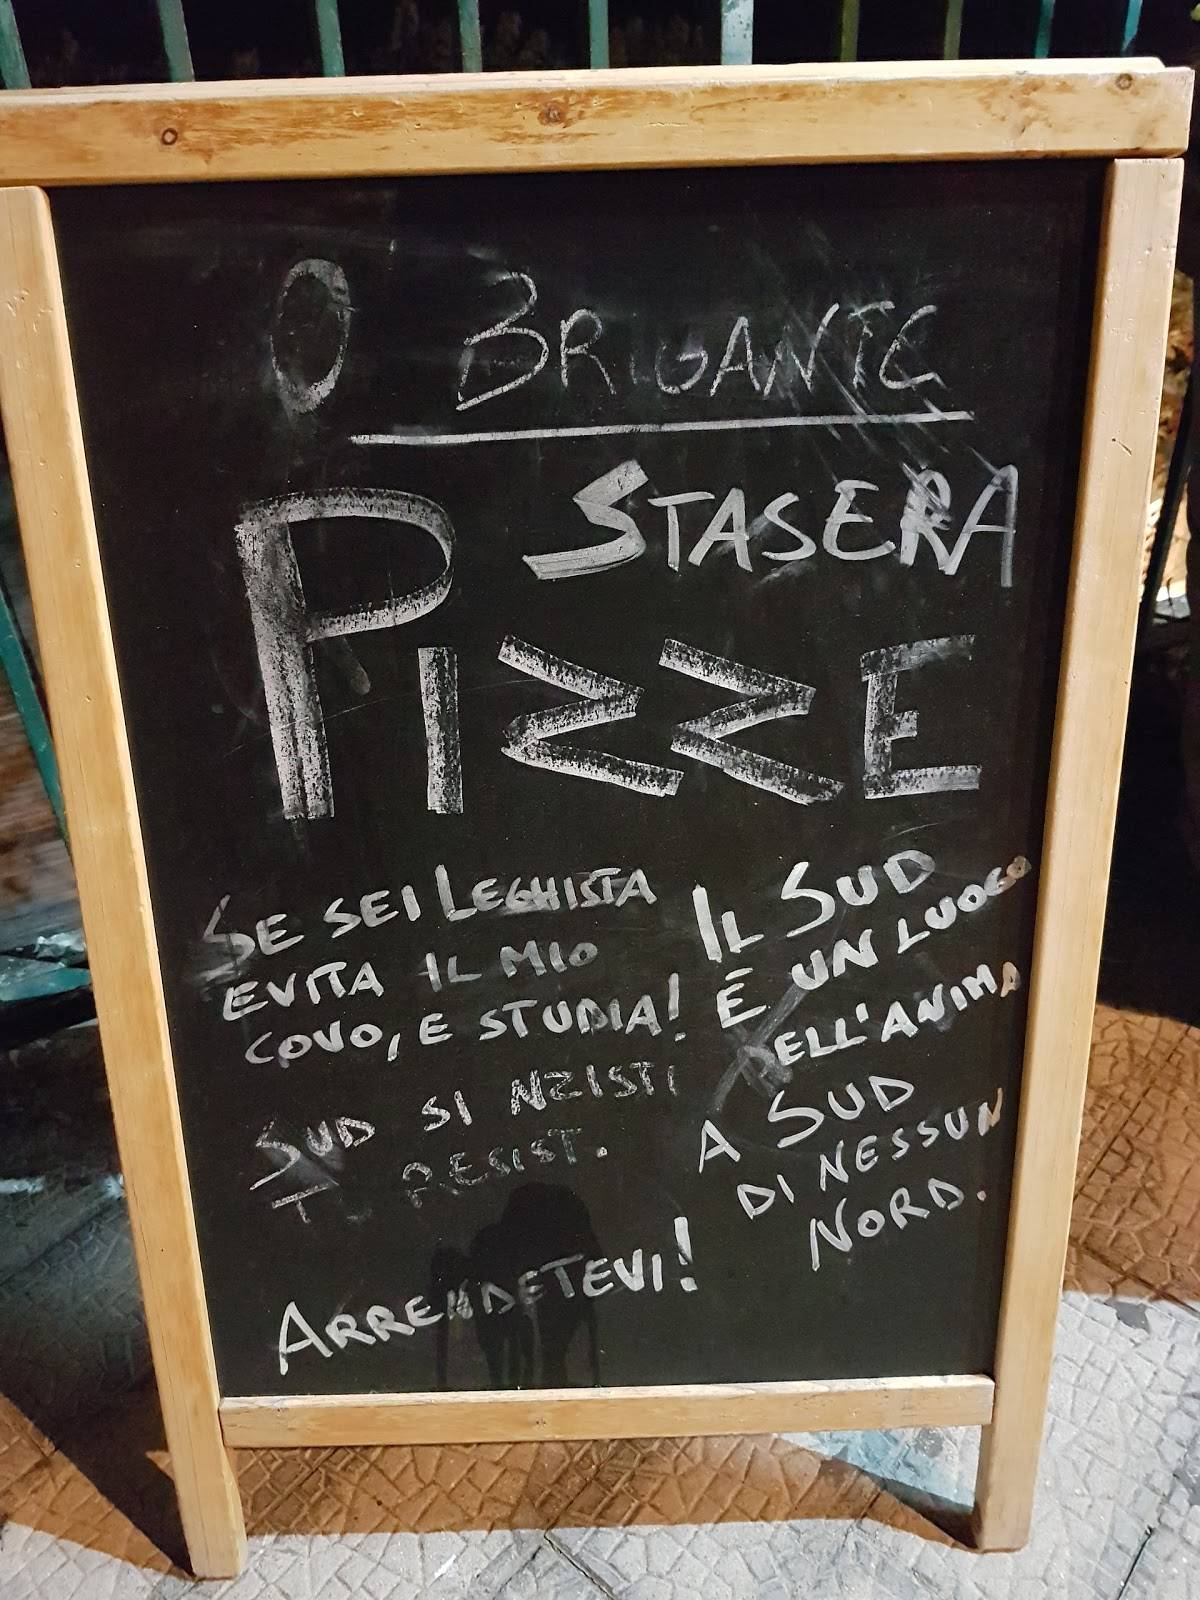 O BRIGANTE
STASERA
PIZZE
SE SEI LEGHISTA
EVITA IL MIO
COVO, E STUDIA!
SUD SI NZISTI
TU RESIST.
ARRENDETEVI!
IL SUD
È UN LUOGO
DELL'ANIMA
A SUD
DI NESSUN
NORD.